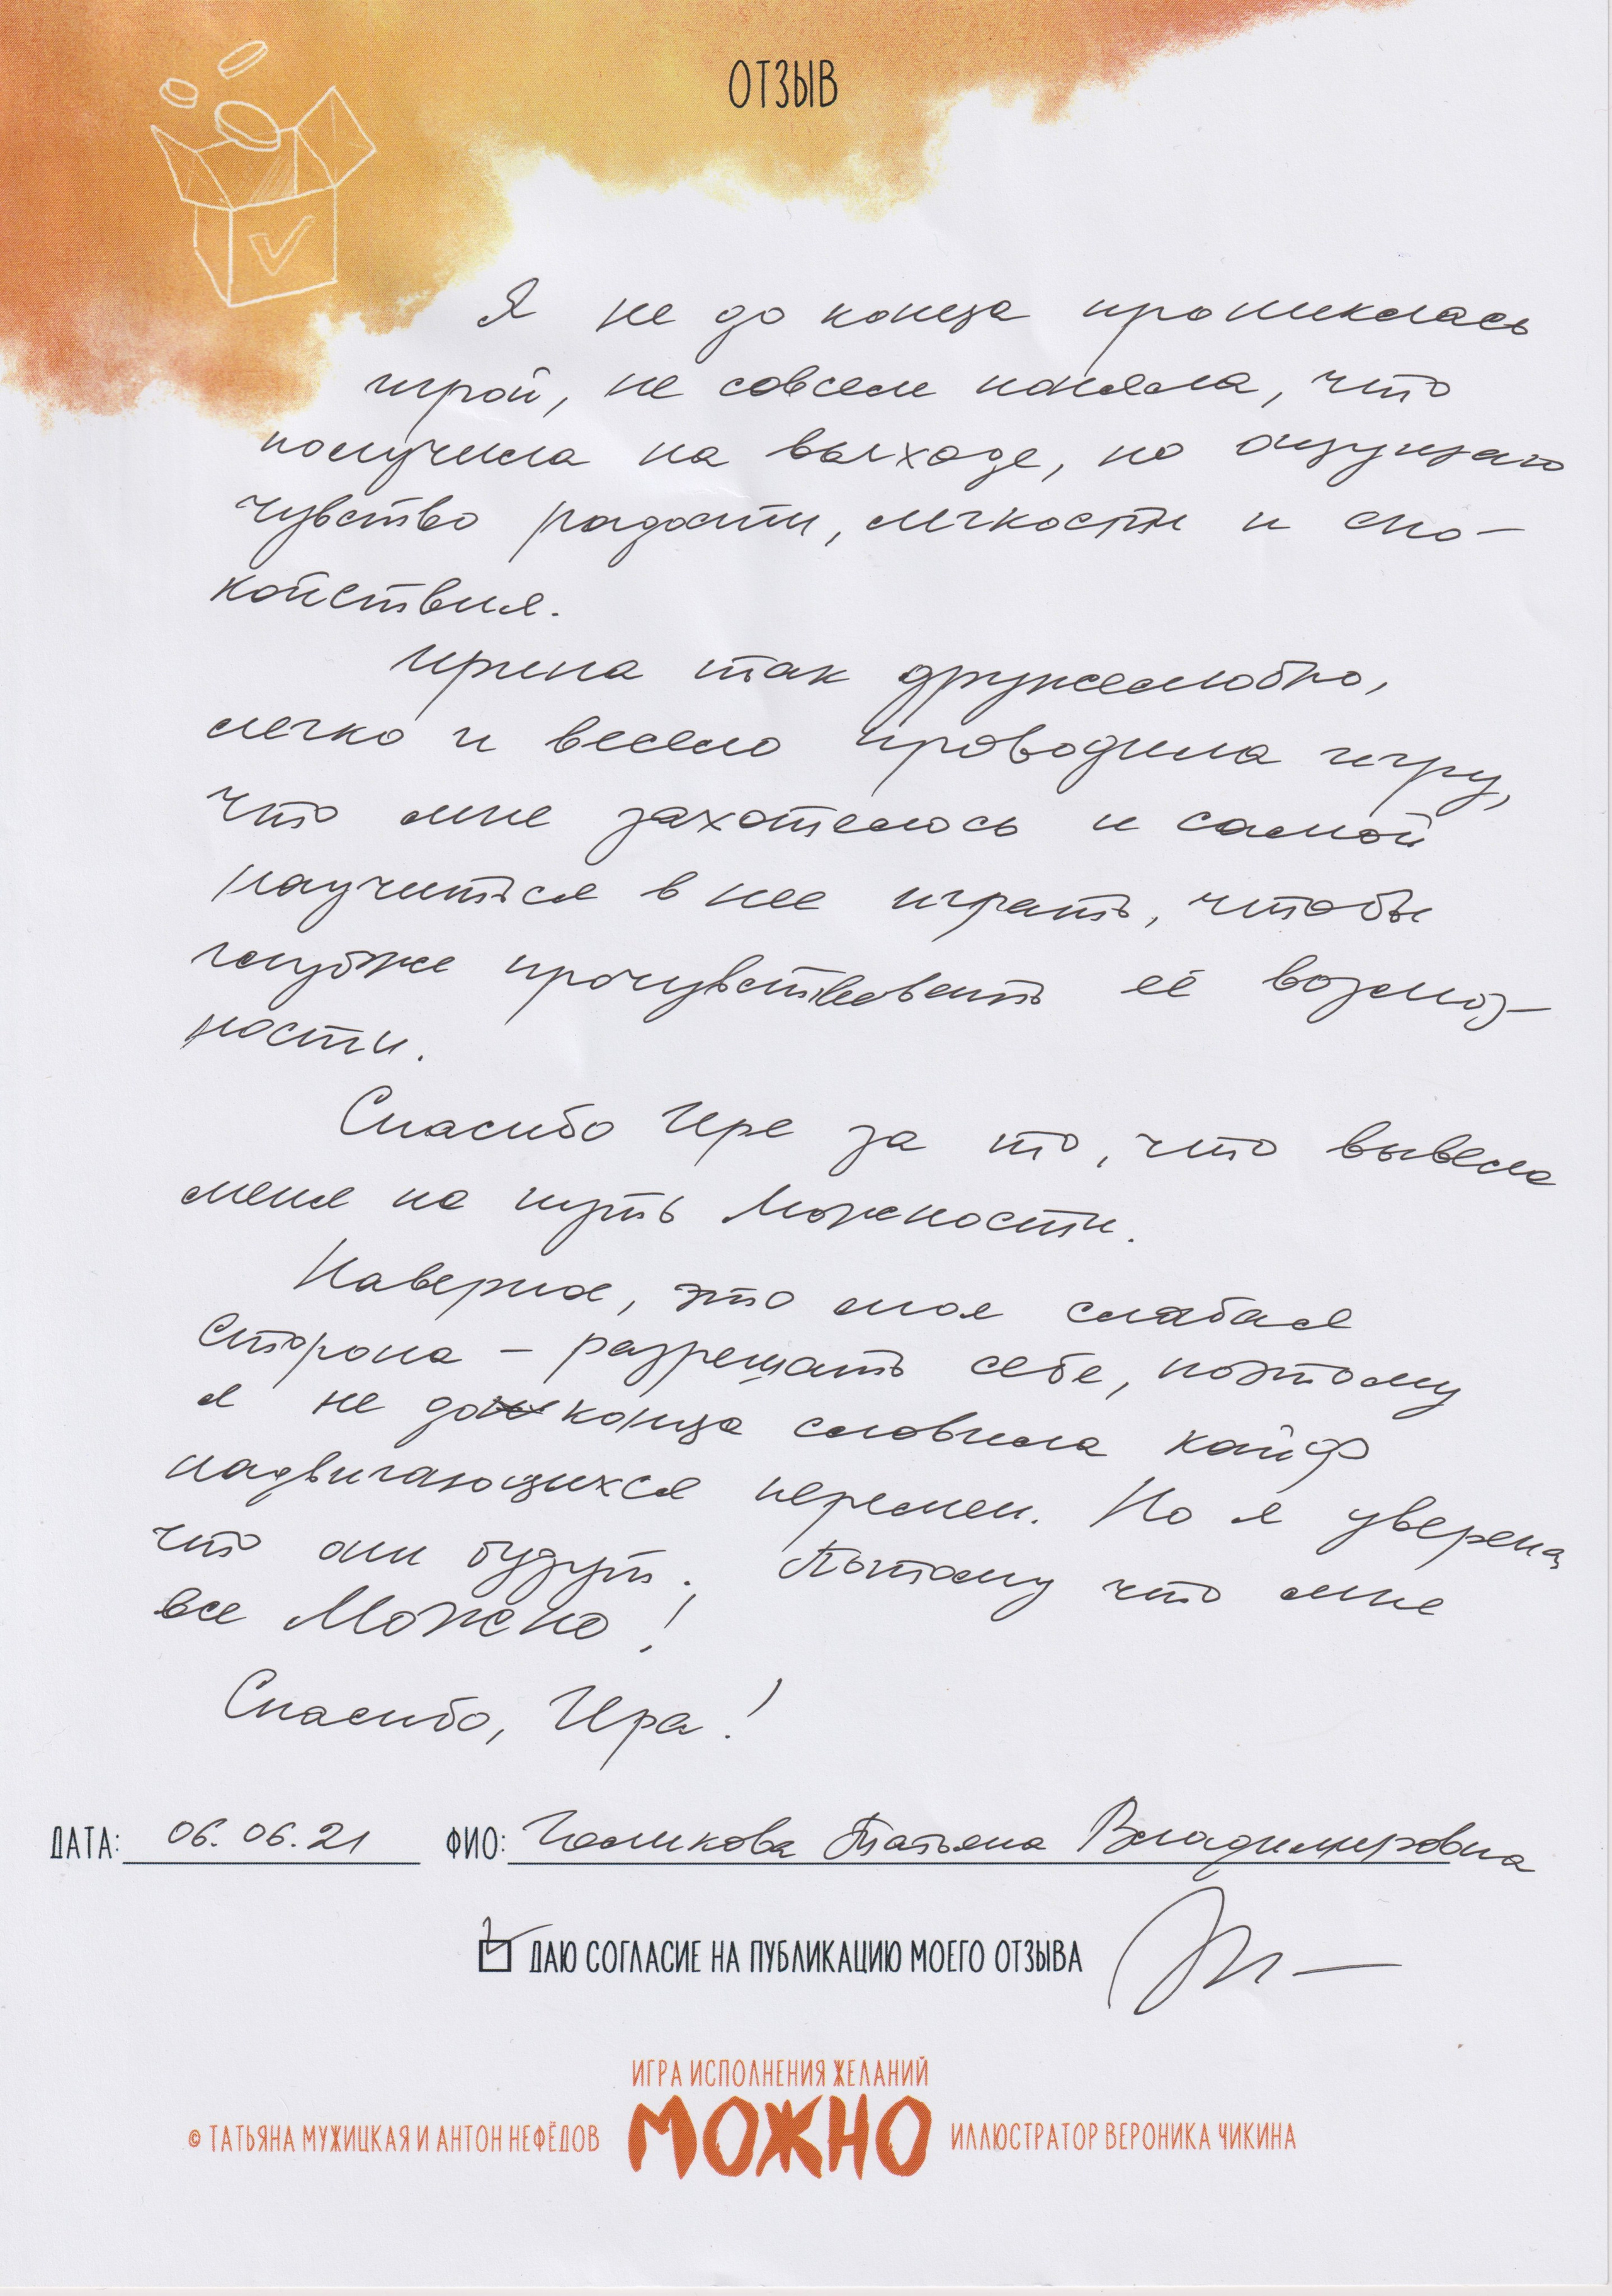 ОТЗЫВ
Я не до конца прониклась
игрой, не совсем поняла, что
получила на выходе, но ощущаю
чувство радости, легкости и спо-
койствия.
Ирина так дружелюбно,
легко и весело проводила игру,
что мне захотелось и самой
научиться в нее играть, чтобы
глубже прочувствовать её возмож-
ности.
Спасибо Ире за то, что вывела
меня на путь Можности.
Наверное, это моя слабая
сторона – разрешать себе, поэтому
я не до конца словила кайф
надвигающихся перемен. Но я уверена,
что они будут! Потому что мне
все Можно!
Спасибо, Ира!
ДАТА: 06.06.21 ФИО: Голикова Татьяна Владимировна
ДАЮ СОГЛАСИЕ НА ПУБЛИКАЦИЮ МОЕГО ОТЗЫВА
ИГРА ИСПОЛНЕНИЯ ЖЕЛАНИЙ
© ТАТЬЯНА МУЖИЦКАЯ И АНТОН НЕФЁДОВ МОЖНО ИЛЛЮСТРАТОР ВЕРОНИКА ЧИКИНА